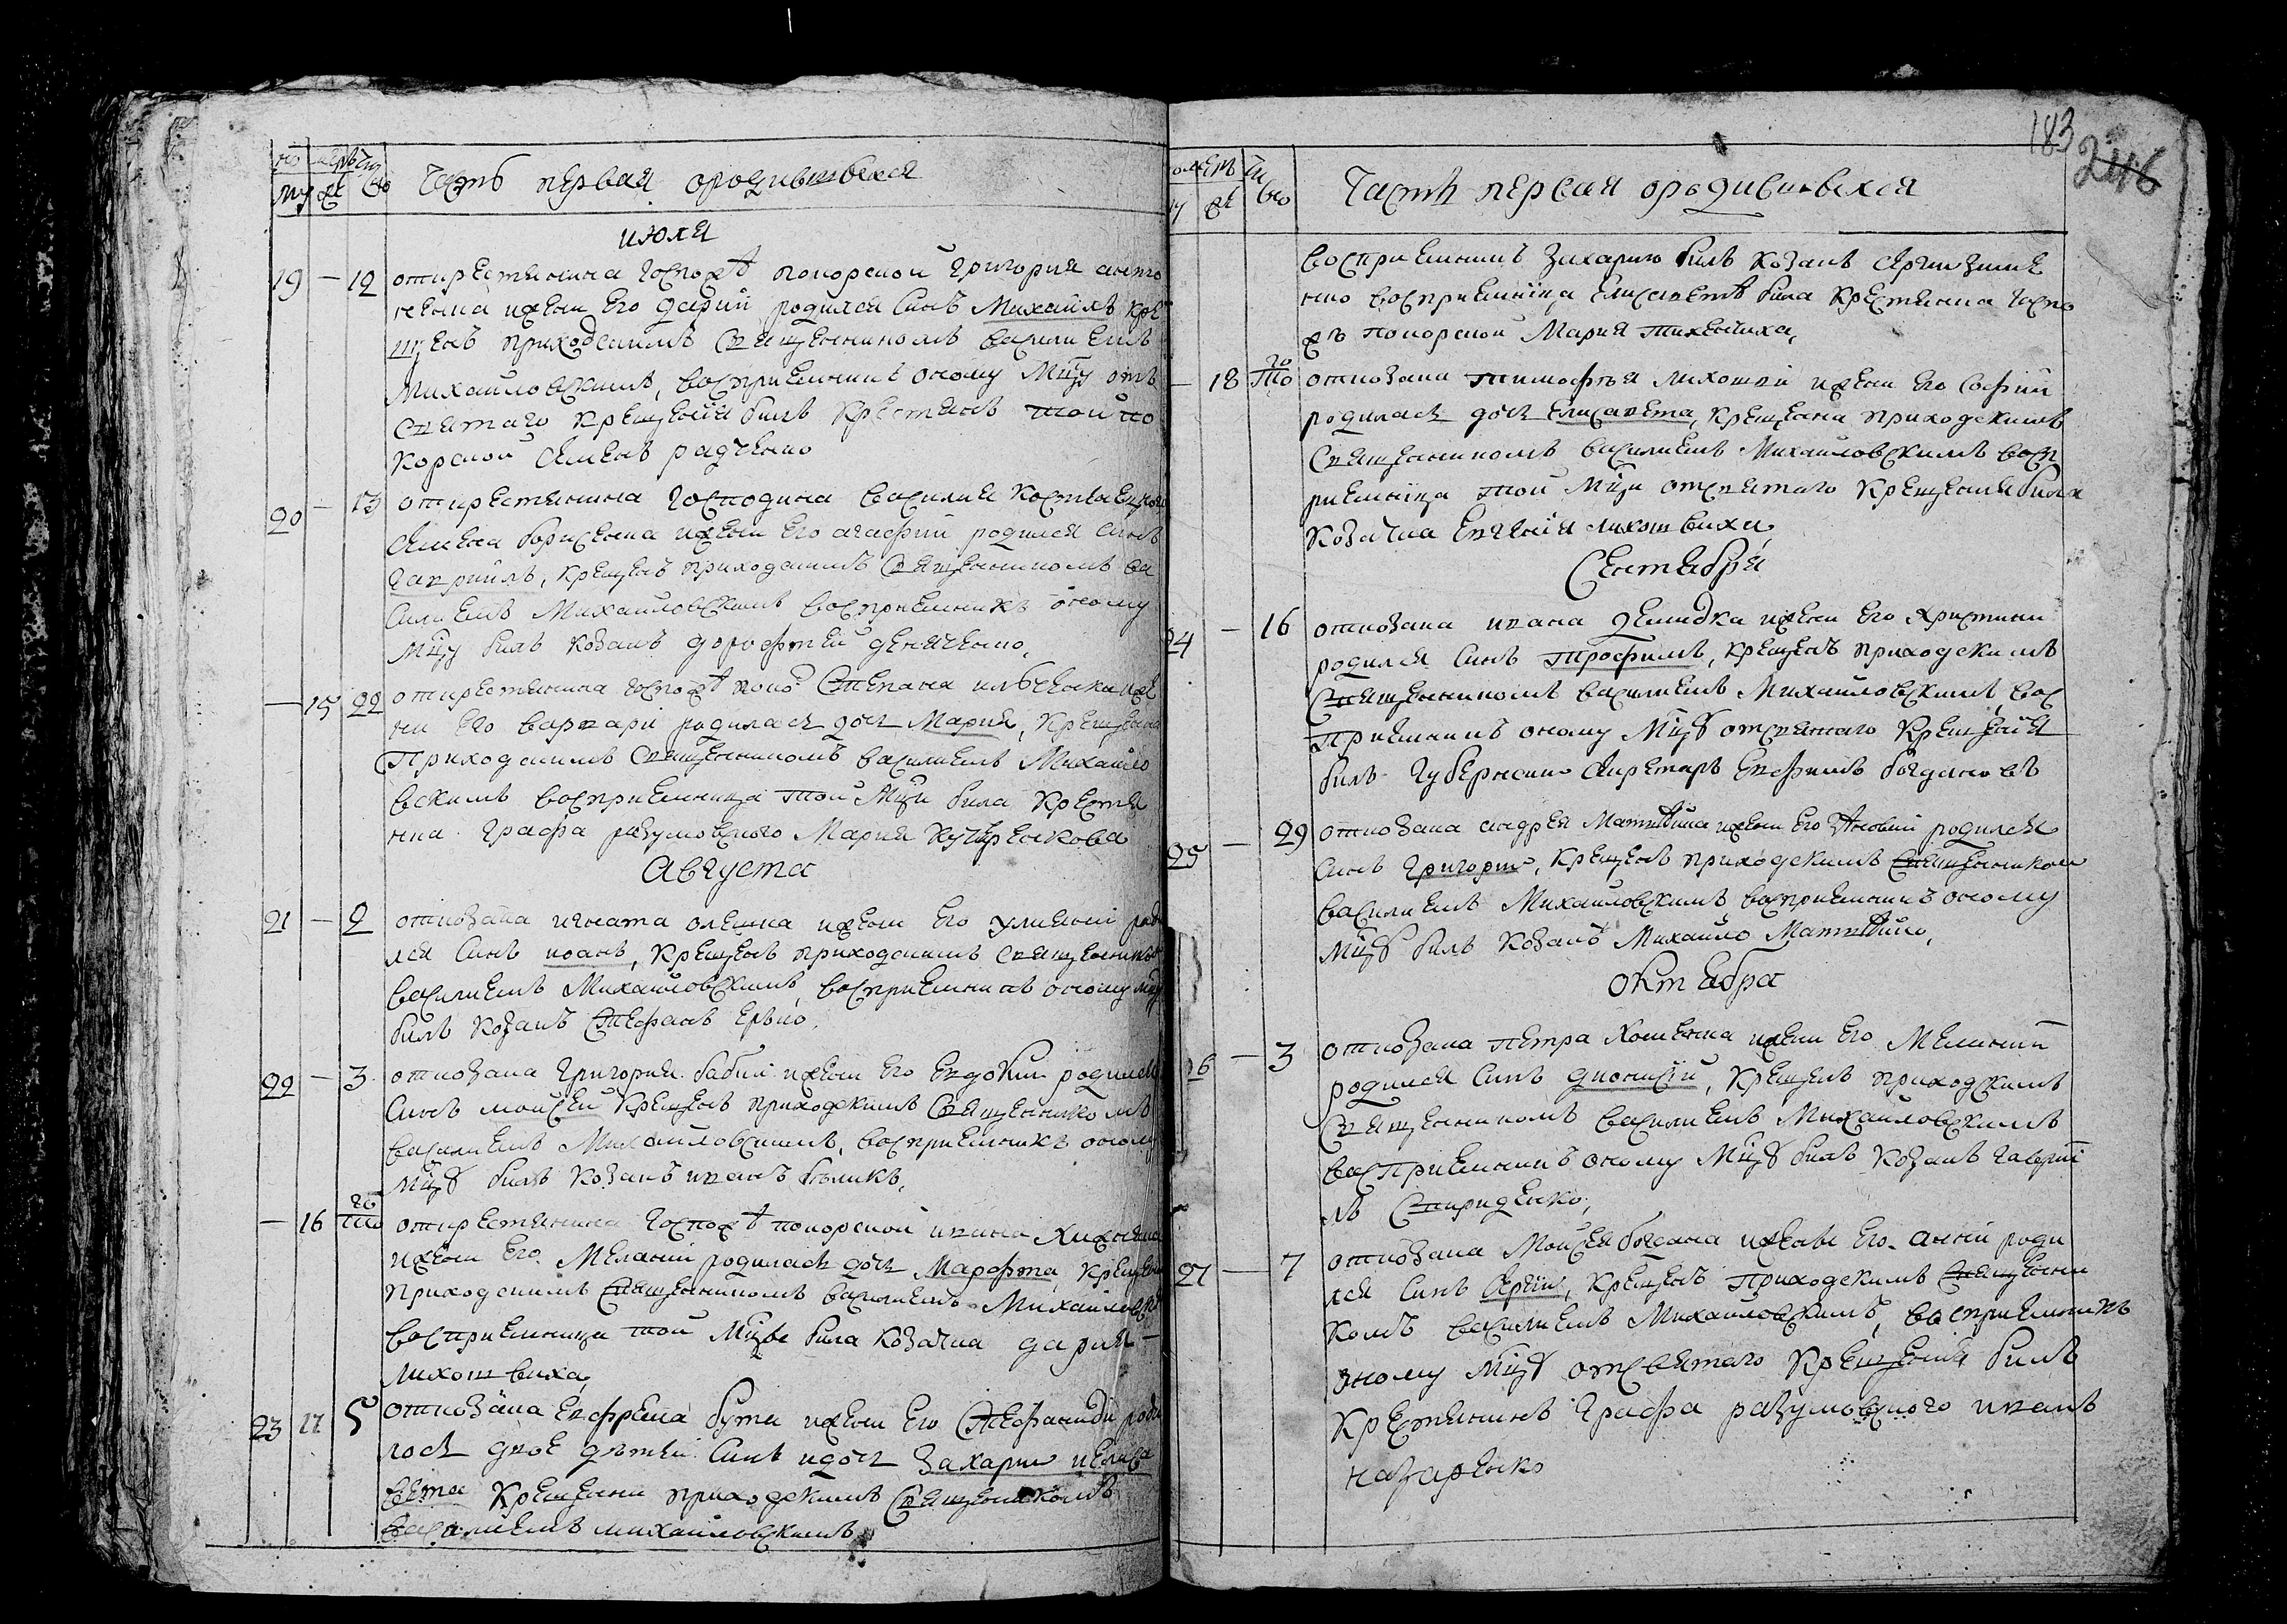 Часть первая ородившихся
июля
19 — 12 открестянина госпожѣ покорской Григория
и жени его Дарии родился синъ Михаилъ кре
щенъ приходскимъ священникомъ василиемъ
Михайловскимъ, восприемникъ оному Мцу отъ
святаго крещения билъ крестянъ той по
корской Семенъ радченко
20 — 13 открестянина господина василия
Семена борисенка и жени его агафии родился синъ
гавриилъ, крещенъ приходскимъ священникомъ ва
силиемъ Михайловскимъ восприемникъ оному
Мцу билъ козакъ дорофтей
— 15 22 открестянина госпожѣ поко Степана илченка и же
ни его варвари родилася дочь Мария, крещена
приходскимъ священникомъ василиемъ Михайло
вскимъ восприемница той Мци била крестя
нка графа разумовского Мария кучеренкова
Августа
21 — 2 откозака игната олешка и жени его улиянии роди
лся синъ иоанъ, крещенъ приходскимъ священникомъ
василиемъ Михайловскимъ, восприемникъ оному Мцу
билъ козакъ Стефанъ
22 — 3 откозака Григория бабия и жени его Евдокии родился
синъ моисей крещенъ приходскимъ священникомъ
василиемъ Михайловскимъ, восприемникъ оному
Мцу билъ козакъ иванъ
— 16 того открестянина госпожѣ покорской ивана
и жени его Мелании родилася дочь Марфта, крещена
приходскимъ священникомъ василиемъ Михайловски
восприемница той Мцѣ била козачка дария
лихошвиха,
23 17 5 откозака Евфрема бути и жени его Стефаниди роди
лося двое дѣтей синъ и дочь Захария и елиса
вета крещени приходскимъ священникомъ
василиемъ михайловскимъ
183
246
Часть первая ородившихся
восприемникъ Захарию билъ козакъ
восприемница Елисаветѣ била крестянка госпо
жѣ покорской Мария
— 18 того откозака тимофтея лихошви и жени его Софии
родилася дочь Елисавета, крещена приходскимъ
священникомъ василиемъ Михайловскимъ восп
риемница той Мци отсвятаго крещения била
козачка Евгения лихошвиха
Сентября
24 — 16 откозака ивана демидка и жени его христини
родился синъ Трофимъ, крещенъ приходскимъ
священникомъ василиемъ Михайловскимъ, вос
приемникъ оному Мцу отсвятаго крещения
билъ губернский секретарь Евфимъ богдановъ
25 — 29 откозака андрея и жени его родился
синъ Григорий, крещенъ приходскимъ священником
василиемъ Михайловскимъ восприемникъ оному
Мцу билъ козакъ Михайло
октября
26 — 3 откозака петра хоменка и жени его Мелании
родился синъ дионисий, крещенъ приходскимъ
священникомъ василиемъ Михайловскимъ
восприемникъ оному Мцу билъ козакъ гаврии
лъ Спириденко,
27 — 7 откозака Моисея и жени его анни роди
лся синъ Сергий, крещенъ приходскимъ священни
комъ василиемъ Михайловскимъ, восприемникъ
оному Мцу отсвятаго крещения билъ
крестянинъ графа разумовского иванъ
назаренко